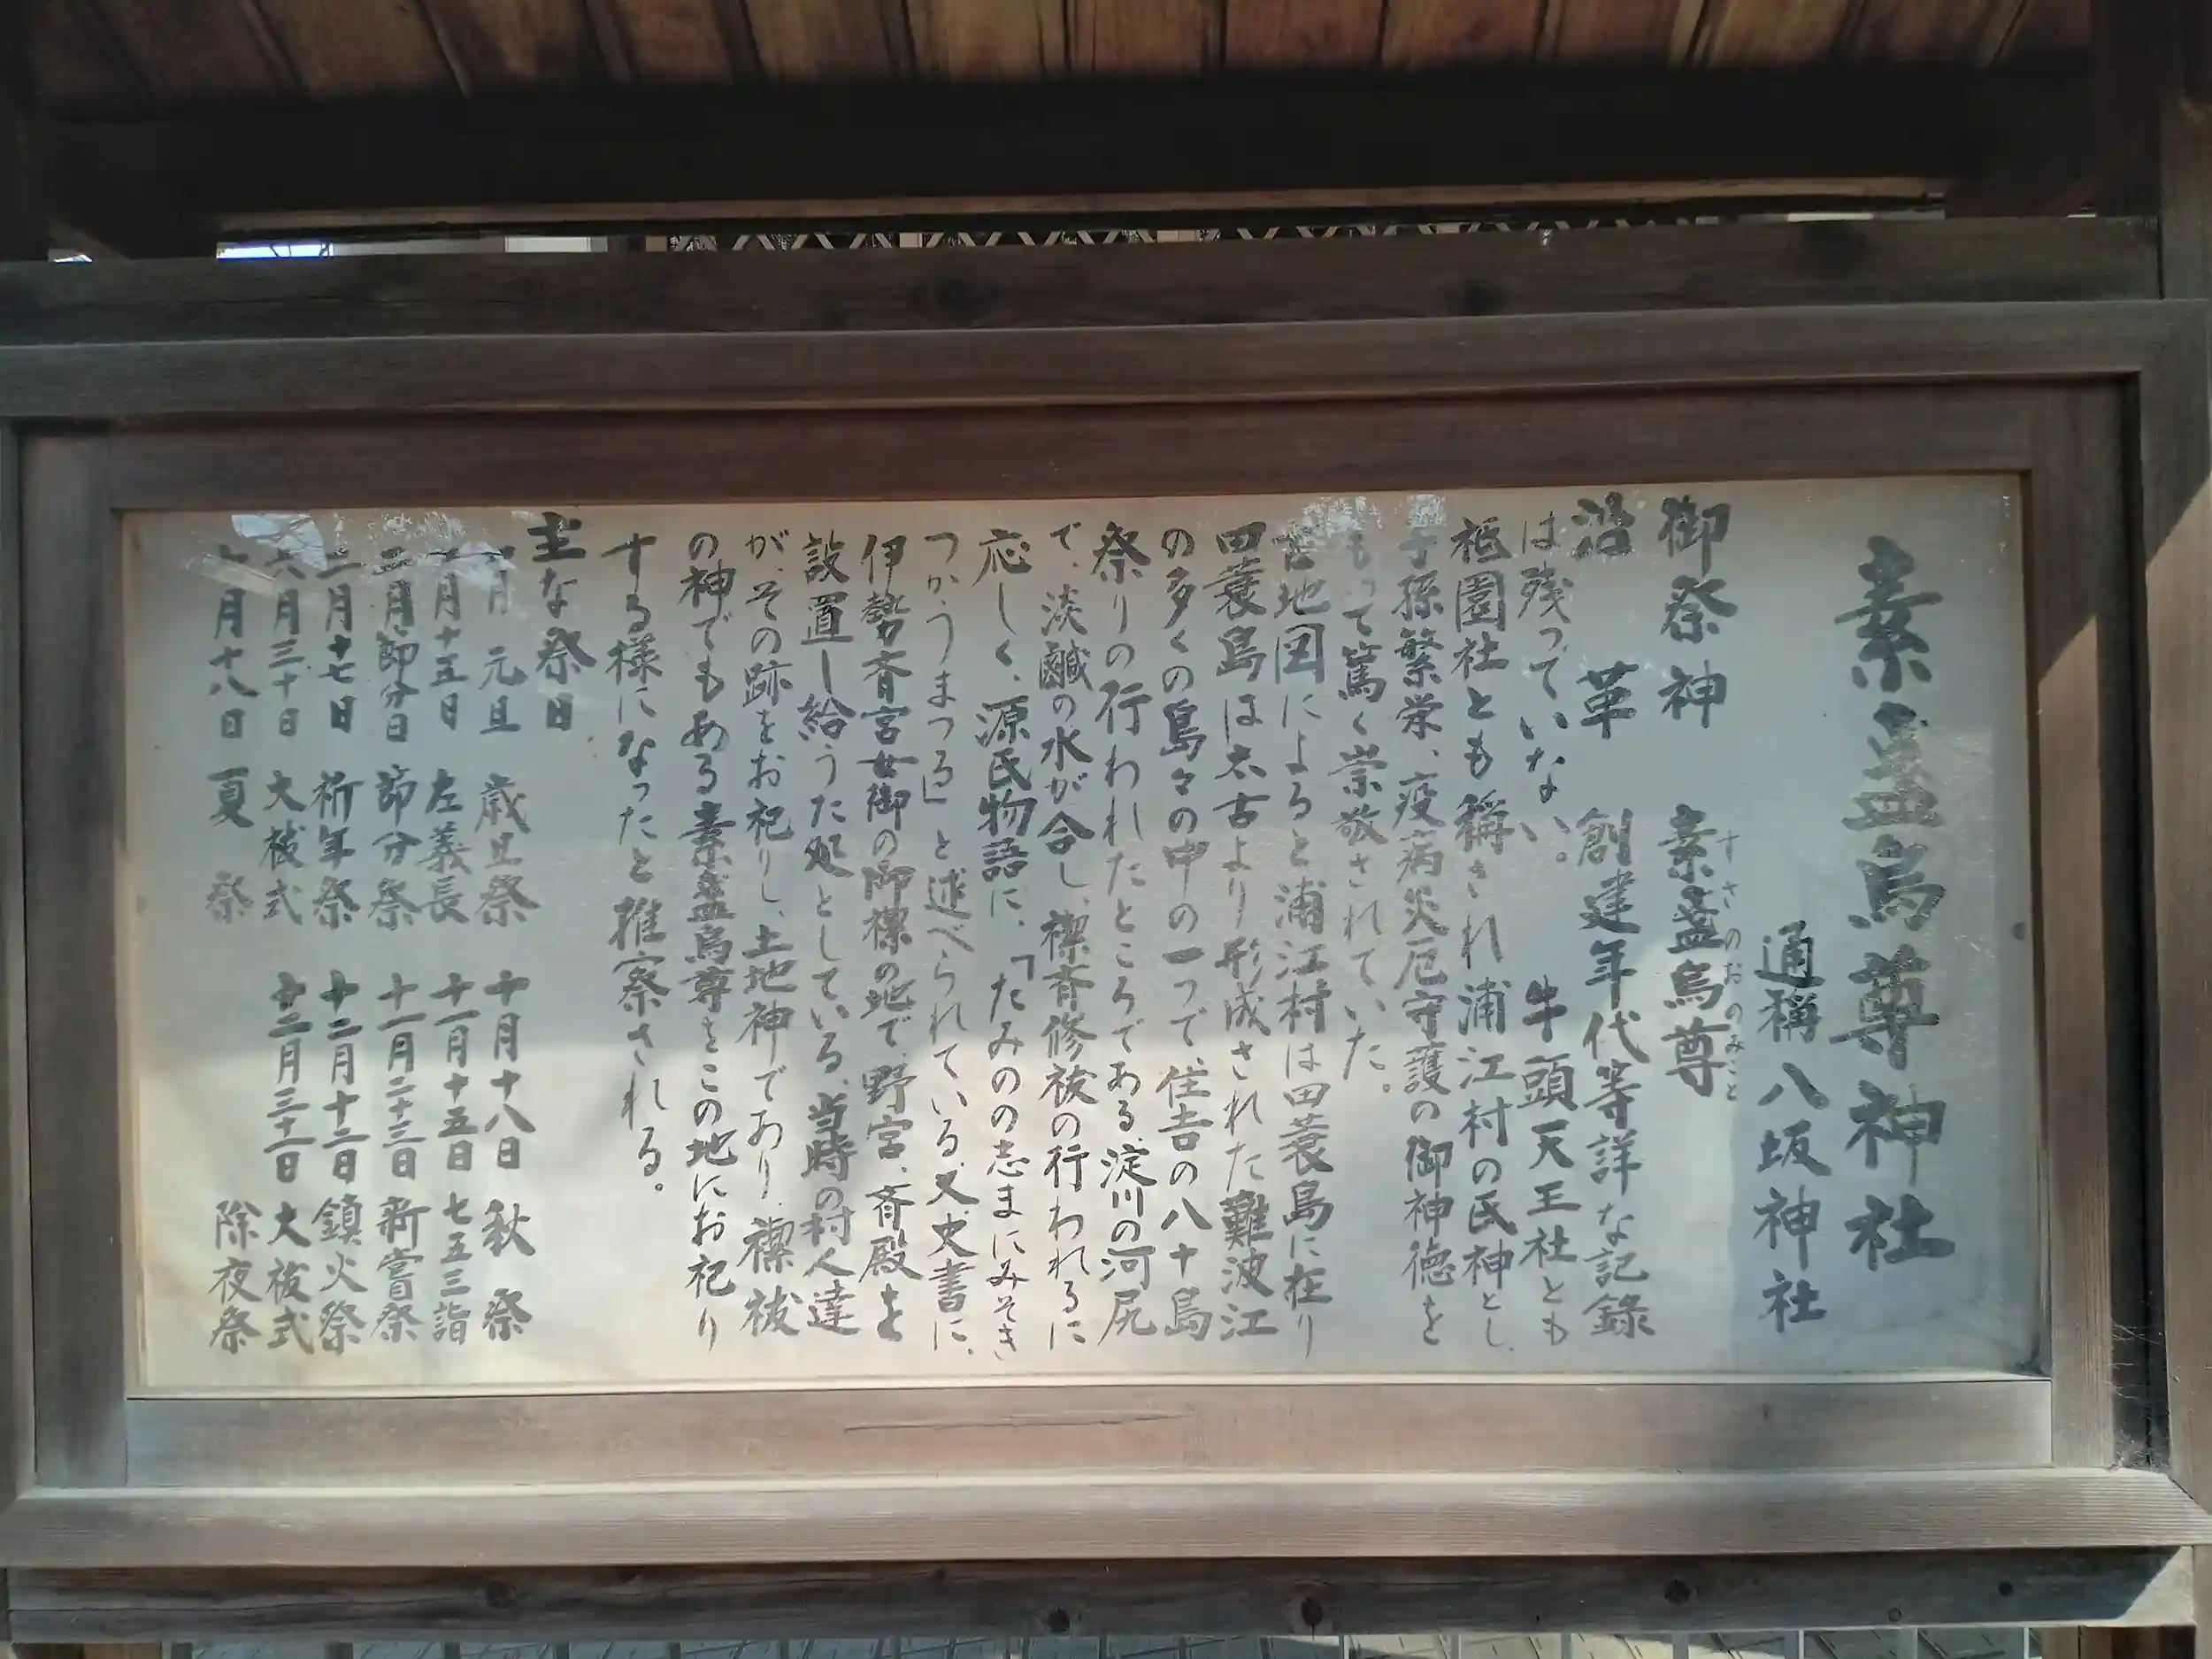 素盞烏尊神社
通稱 八坂神社
御祭神 素盞烏尊
すさのおのみこと
沿革 創建年代等詳な記録
は残っていない。牛頭天王社とも
祗園社とも稱され浦江村の氏神とし、
子孫繁栄、疫病災厄守護の御神徳を
もって篤く崇敬されていた。
古地図によると浦江村は田蓑島に在り
田蓑島は太古より形成された難波江
の多くの島々の中の一つで、住吉の八十島
祭りの行われたところである、淀川の河尻
で、淡鹹の水が合し、禊斉修祓の行われるに
応しく、源氏物語に、「たみのの志まにみそき
つかうまつる」と述べられている、又、史書に、
伊勢斉宮女御の御禊の地で、野宮、斉殿を
設置し給うた処としている、当時の村人達
が、その跡をお祀りし、土地神であり、禊祓
の神でもある素盞烏尊をこの地にお祀り
する様になったと推察される。
主な祭日
一月 元旦 歳旦祭 十月十八日 秋祭
一月十五日 左義長 十一月十五日 七五三詣
二月節分日 節分祭 十一月二十三日 新嘗祭
二月十七日 祈年祭 十二月十二日 鎮火祭
六月三十日 大祓式 十二月三十一日 大祓式
七月十八日 夏祭 除夜祭